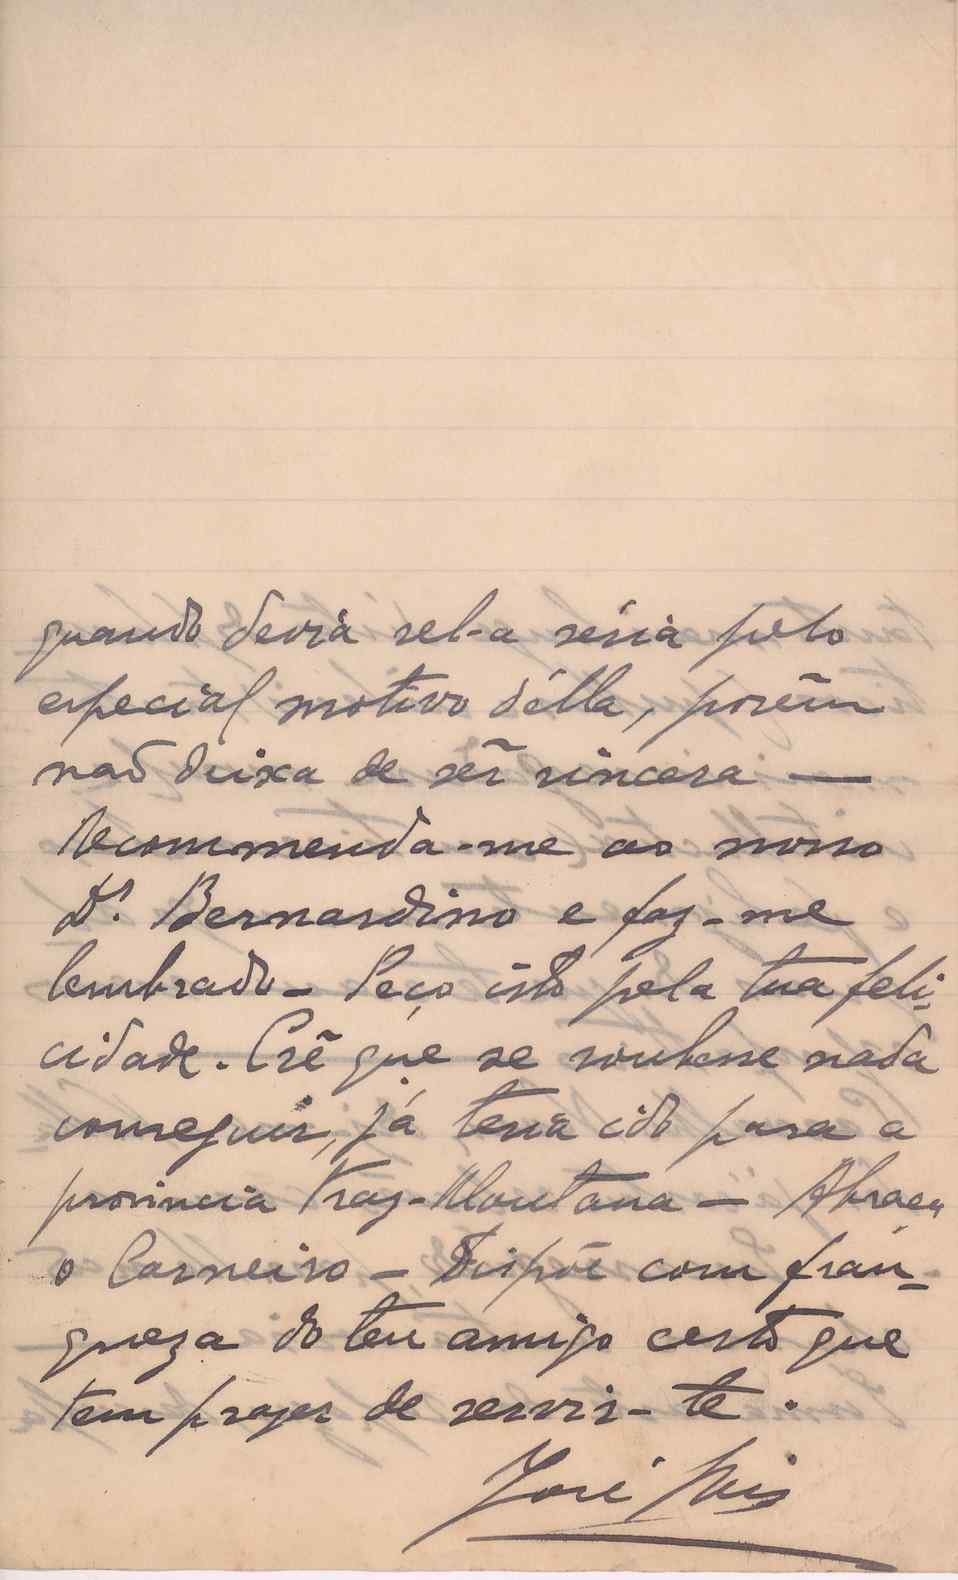 quando devia sel-a séria pelo
especial motivo d'élla, porẽm
não deixa de sẽr sincera —
Recommenda-me ao nosso
Dr. Bernardino e faz-me
lembrado — Peço isto pela tua feli-
cidade. Crê que se soubesse nada
conseguir, já teria ido para a
provincia Traz-Montana — Abraça
o Carneiro — Dispõe com fran-
queza do teu amigo certo que
tem prazer de servir-te.
José